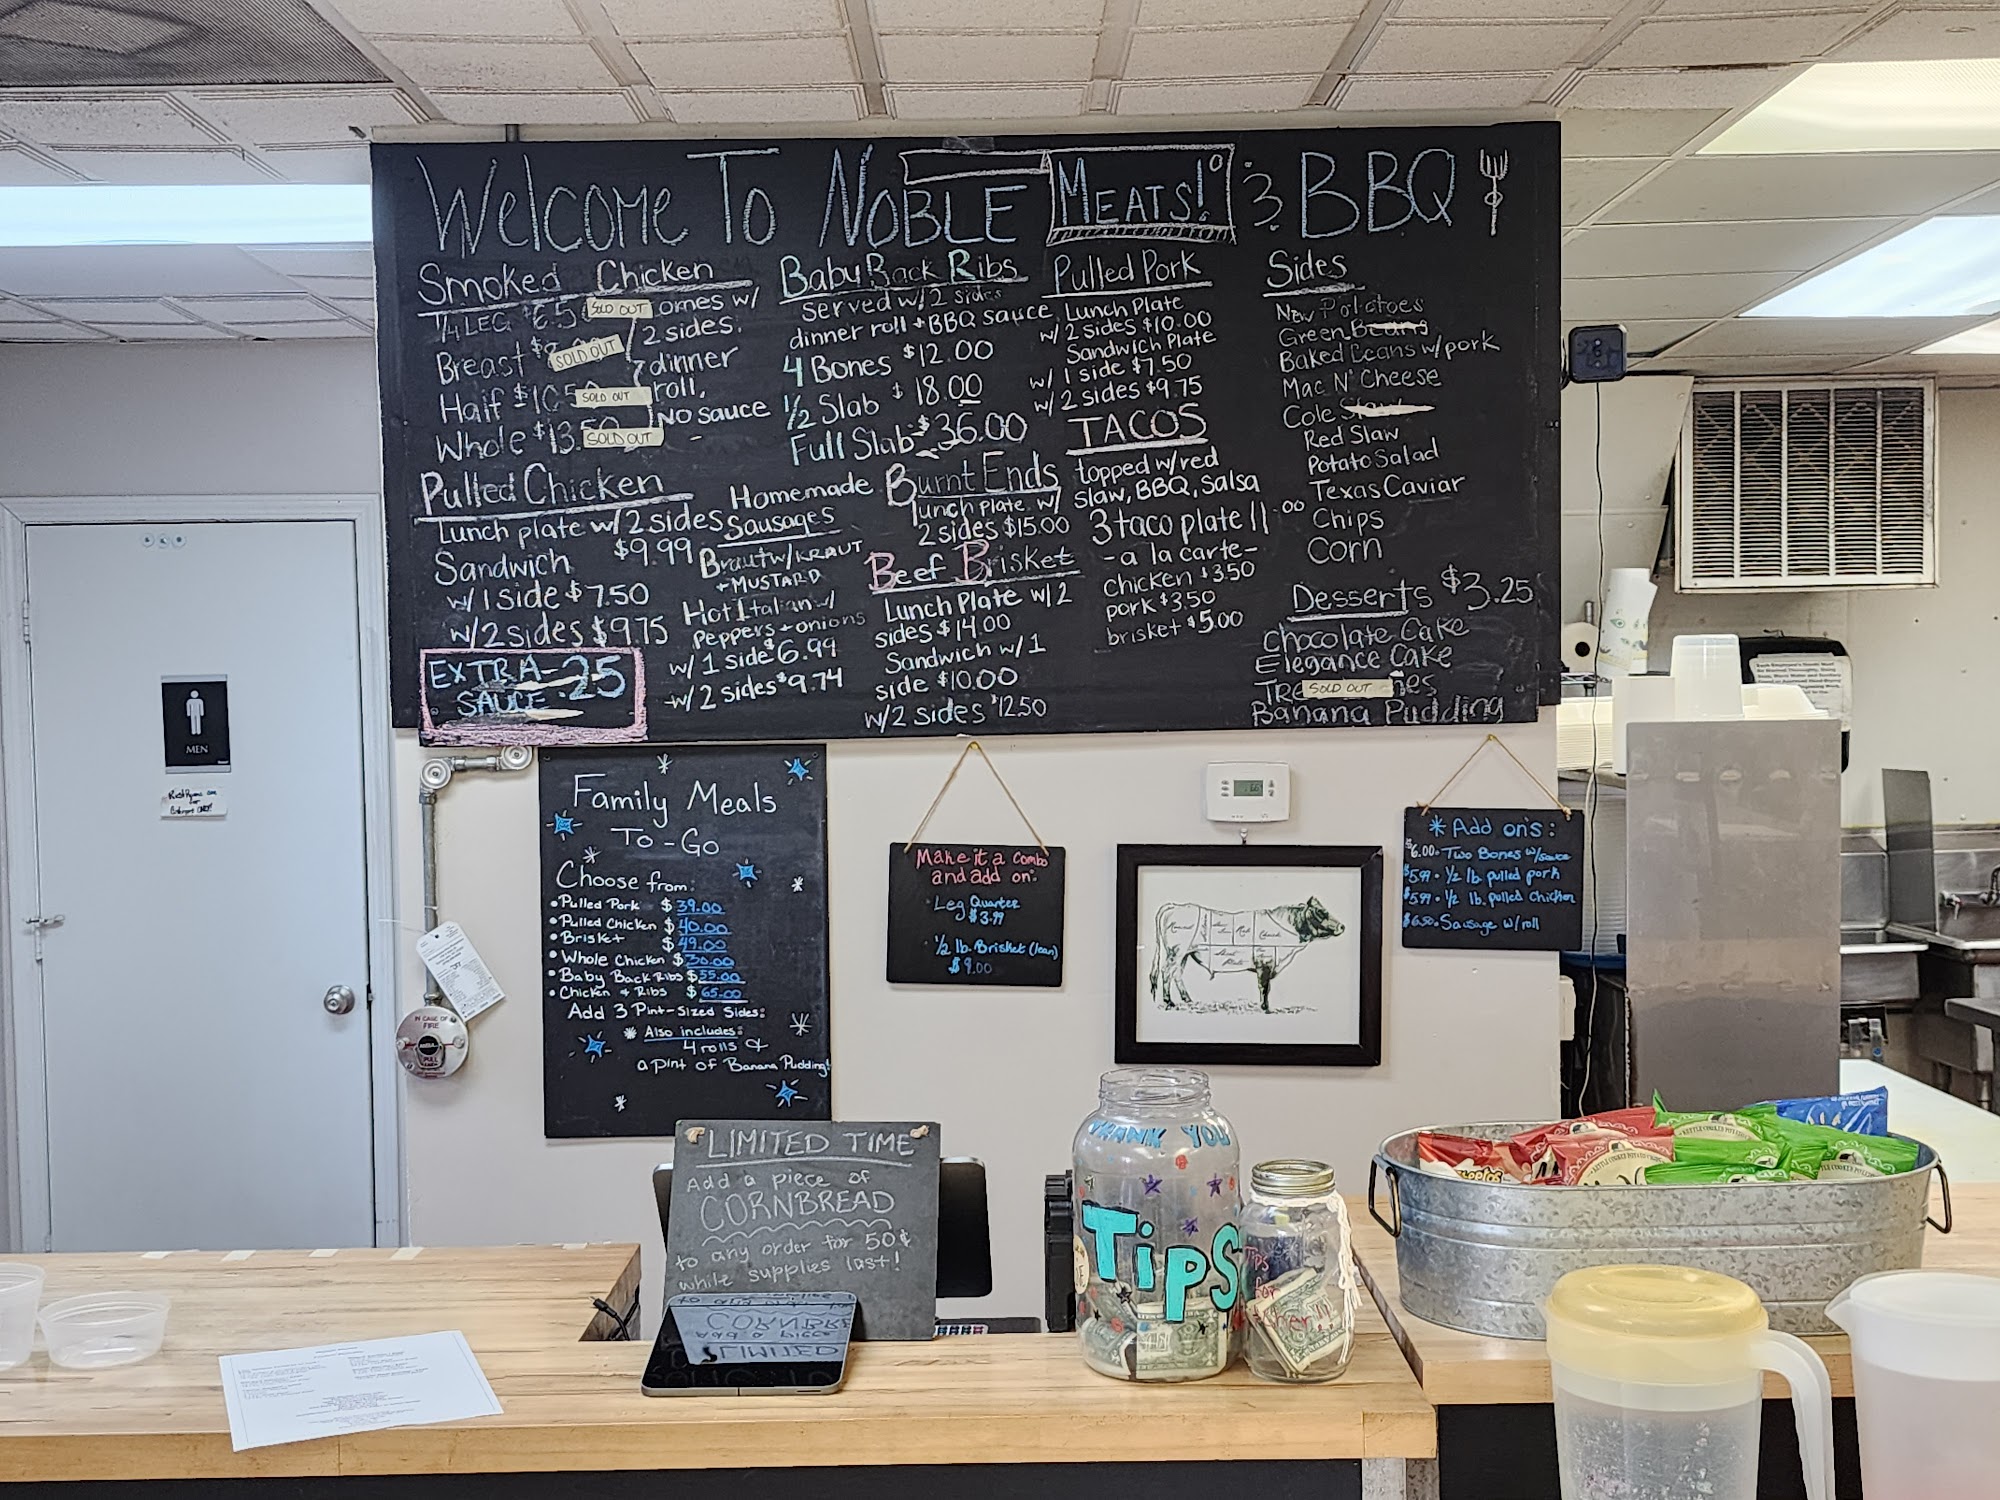 WELCOME TO NOBLE MEATS! & BBQ
Smoked Chicken
1/4 LEG $6.5 SOLD OUT omes w/
2 sides.
Breast SOLD OUT dinner
Half $10.5 SOLD OUT roll,
NO sauce
Whole $13.50 SOLD OUT
Pulled Chicken
Lunch plate w/ 2 sides
$9.99
Sandwich
w/ 1 side $7.50
w/ 2 sides $9.75
EXTRA - .25
SAUCE
Homemade
Sausages
Braut w/ KRAUT
+ MUSTARD
Hot Italian w/
Peppers + onions
w/ 1 side $6.99
w/ 2 sides $9.74
Baby Back Ribs
served w/ 2 sides
dinner roll + BBQ sauce
4 Bones $12.00
1/2 Slab $18.00
Full Slab $36.00
Burnt Ends
lunch plate w/
2 sides $15.00
Beef Brisket
Lunch Plate w/ 2
sides $14.00
Sandwich w/ 1
side $10.00
w/ 2 sides $12.50
Pulled Pork
Lunch Plate
w/ 2 sides $10.00
Sandwich Plate
w/ 1 side $7.50
w/ 2 sides $9.75
TACOS
topped w/ red
slaw, BBQ, salsa
3 taco plate 11.00
- a la carte -
Chicken $3.50
pork $3.50
brisket $5.00
Sides
New Potatoes
Green Beans
Baked Beans w/ pork
Mac N' Cheese
Cole Slaw
Red Slaw
Potato Salad
Texas Caviar
Chips
Corn
Desserts $3.25
Chocolate Cake
Elegance Cake
Tre SOLD OUT hes
Banana Pudding
MEN
Family Meals
To-Go
Choose from:
• Pulled Pork $39.00
• Pulled Chicken $40.00
• Brisket $49.00
• Whole Chicken $30.00
• Baby Back Ribs $55.00
• Chicken & Ribs $65.00
Add 3 Pint-Sized Sides:
* Also includes:
4 rolls &
a pint of Banana Pudding!
Make it a combo
and add on:
Leg Quarter
$3.99
1/2 lb. Brisket (lean)
$9.00
* Add on's:
$6.00 • Two Bones w/ sauce
$5.99 • 1/2 lb. pulled pork
$5.99 • 1/2 lb. pulled chicken
$6.50 • Sausage w/ roll
IN CASE OF
FIRE
PULL
LIMITED TIME
Add a piece of
CORNBREAD
to any order for 50¢
while supplies last!
THANK YOU
Tips
Tips
for